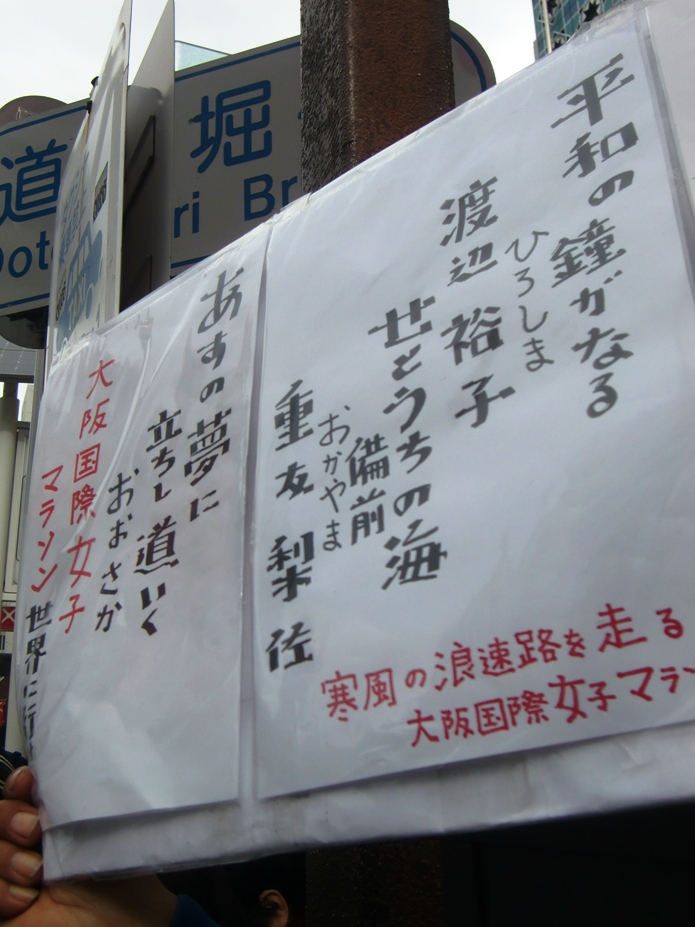 平和の鐘がなる
ひろしま
渡辺裕子
せとうちの海
備前
おかやま
重友梨佐
寒風の浪速路を走る
大阪国際女子マラソ
あすの夢に
立ちし道いく
おおさか
大阪国際女子
マラソン世界に行
道
堀
Doto
ri Br